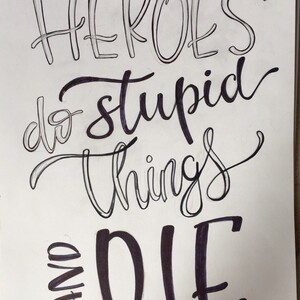 HEROES
do stupid
things
AND DIE